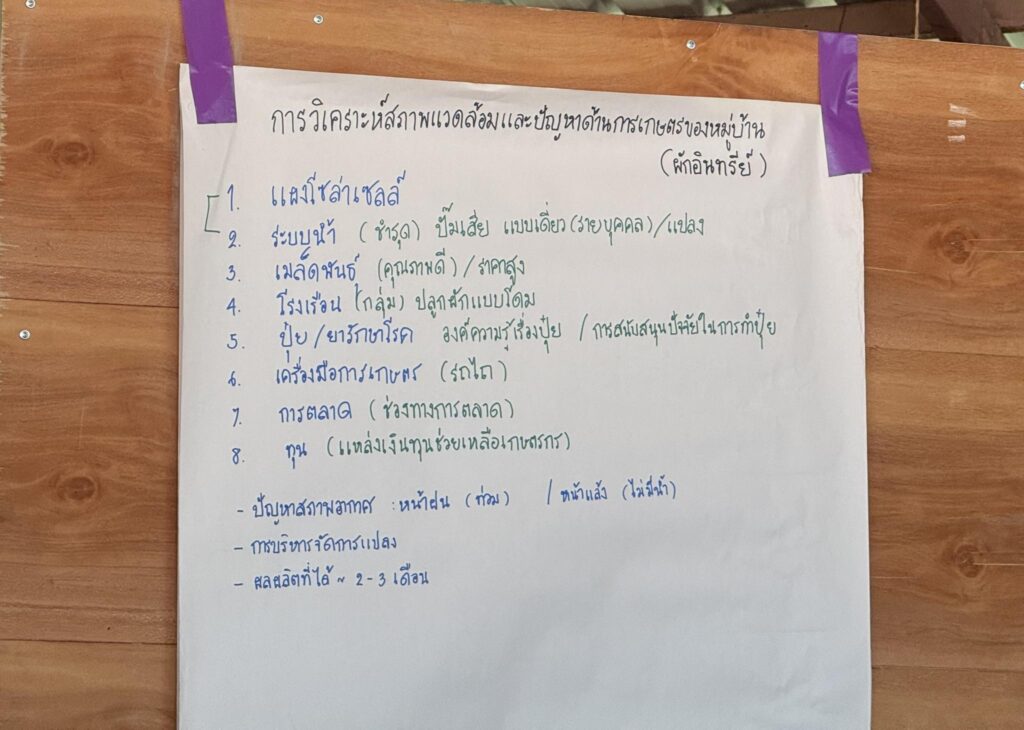 การวิเคราะห์สภาพแวดล้อมและปัญหาด้านการเกษตรของหมู่บ้าน
(ผักอินทรีย์)
1. แผงโซล่าเซลล์
2. ระบบน้ำ (ชำรุด) ปั๊มเสีย แบบเดี่ยว (รายบุคคล) / แปลง
3. เมล็ดพันธุ์ (คุณภาพดี) / ราคาสูง
4. โรงเรือน (กลุ่ม) ปลูกผักแบบโดม
5. ปุ๋ย / ยารักษาโรค องค์ความรู้เรื่องปุ๋ย / การสนับสนุนปัจจัยในการทำปุ๋ย
6. เครื่องมือการเกษตร (รถไถ)
7. การตลาด (ช่องทางการตลาด)
8. ทุน (แหล่งเงินทุนช่วยเหลือเกษตรกร)
- ปัญหาสภาพอากาศ : หน้าฝน (ท่วม) / หน้าแล้ง (ไม่มีน้ำ)
- การบริหารจัดการแปลง
- ผลผลิตที่ได้ ~ 2 - 3 เดือน